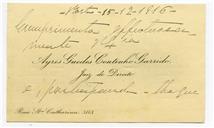 Porto - 15-12-1916 -
Cumprimenta affectuosa-
mente
Ayres Guedes Coutinho Garrido
Juiz de Direito
e
Rua St.ª Catharina,